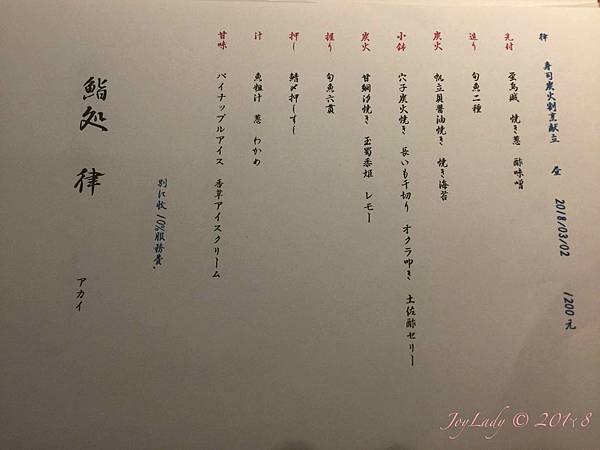 律 寿司炭火割烹献立 昼 2018/03/02 1200元
先付 蛍烏賊 焼き葱 酢味噌
造り 旬魚二種
炭火 帆立貝醤油焼き 焼き海苔
小鉢 穴子炭火焼き 長いも千切り オクラ叩き 土佐酢ゼリー
炭火 甘鯛汐焼き 玉蜀黍 レモー
握り 旬魚六貫
押し 鯖〆押しずし
汁 魚粗汁 葱 わかめ
甘味 パイナップルアイス 香草アイスクリーム
別に收10%服務費.
鮨処 律
アカイ
JoyLady © 2018